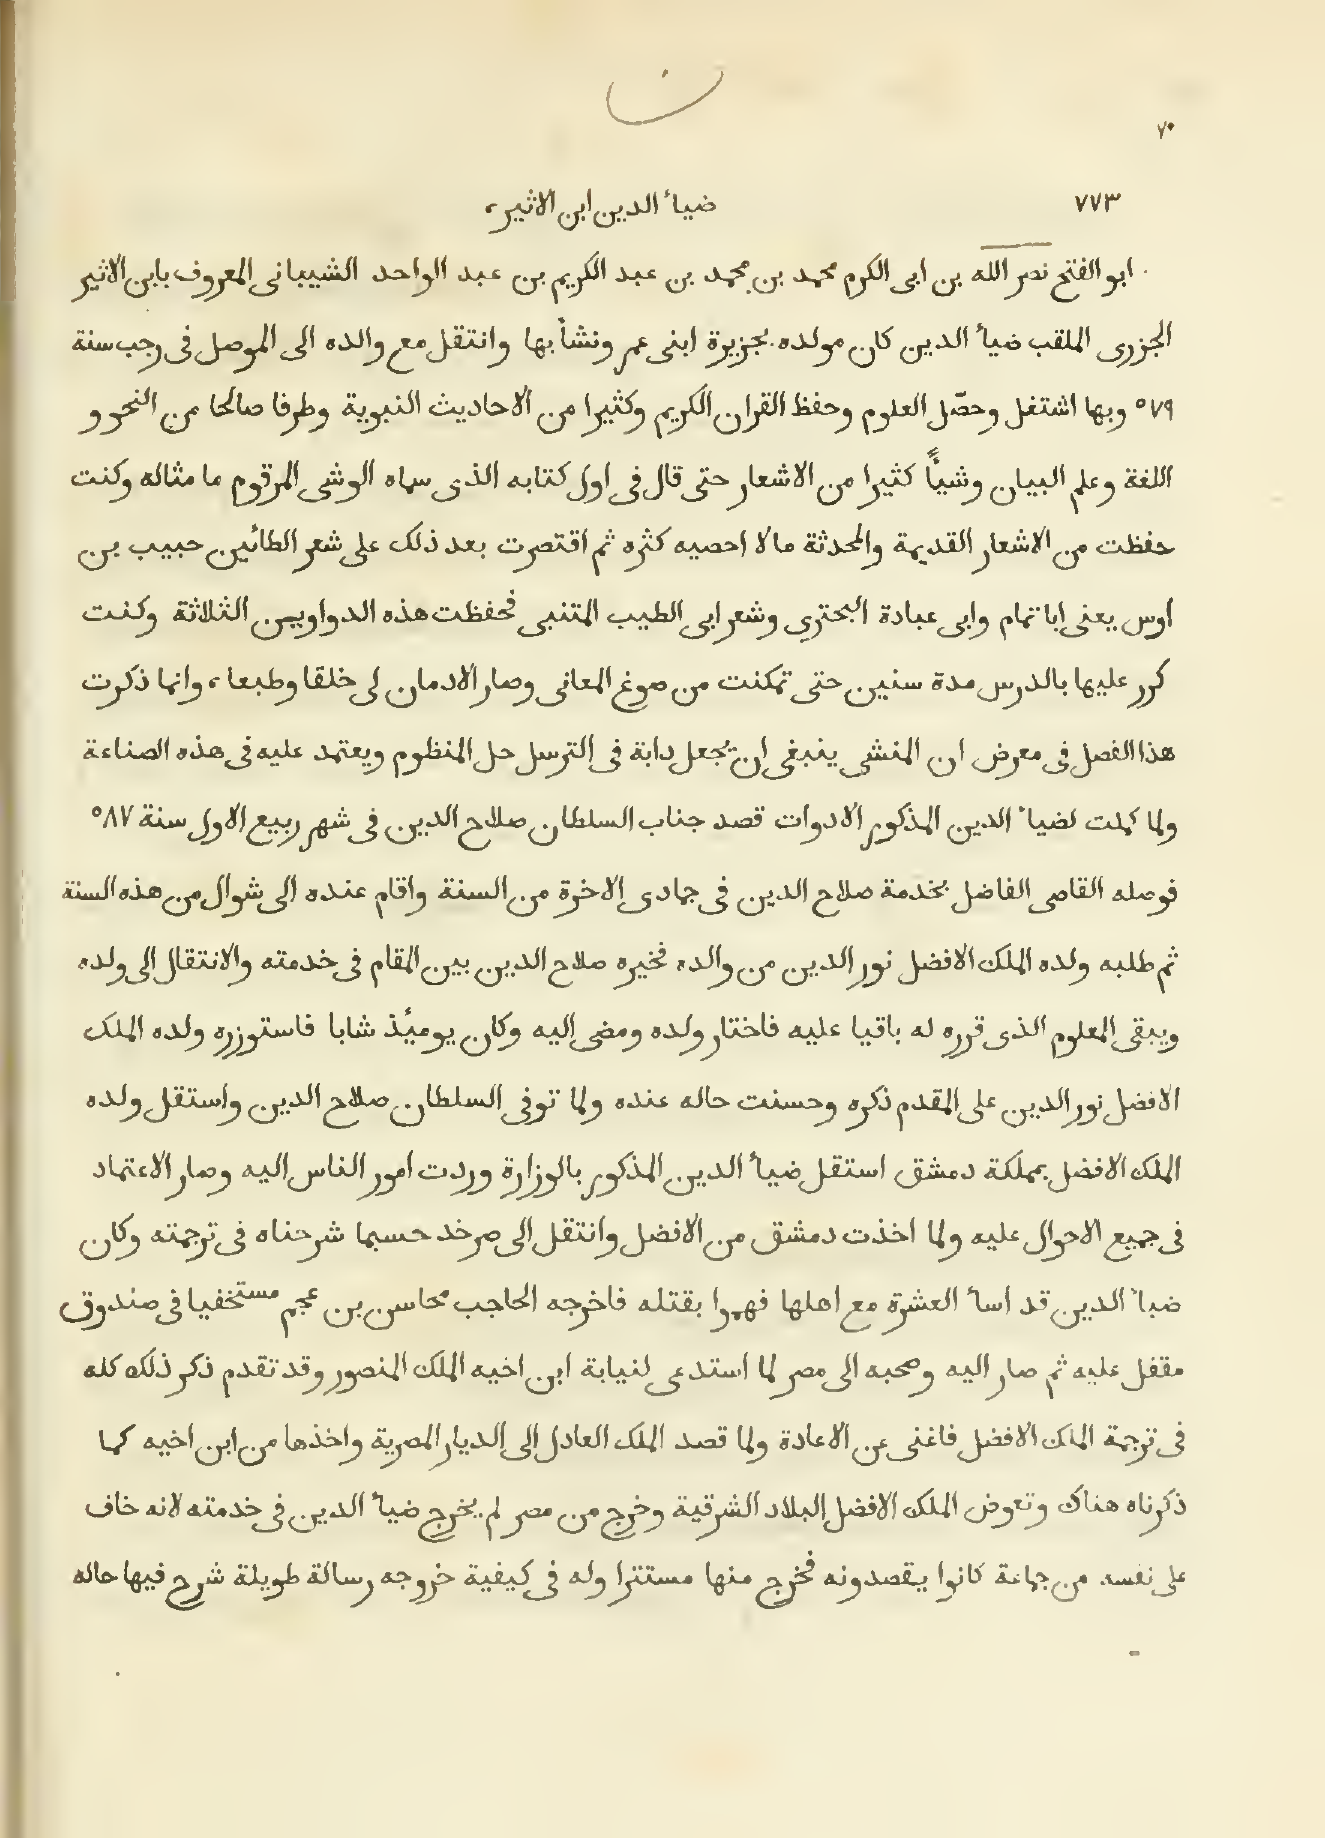 ن
٧٠
٧٧٣ ضياٴ الدين ابن الاثير،
ابو الفتح نصر الله بن ابى الكرم محمد بن محمد بن عبد الكريم بن عبد الواحد الشيبانى المعروف بابن الاثير
الجزرى الملقب ضياٴ الدين كان مولده بجزيرة ابنى عمر ونشأ بها وانتقل مع والده الى الموصل فى رجب سنة
٥٧٩ وبها اشتغل وحصّل العلوم وحفظ القران الكريم وكثيرا من الاحاديث النبوية وطرفا صالحا من النحو و
اللغة وعلم البيان وشيأً كثيرا من الاشعار حتى قال فى اول كتابه الذى سماه الوشى المرقوم ما مثاله وكنت
حفظت من الاشعار القديمة والمحدثة مالا احصيه كثره ثم اقتصرت بعد ذلك على شعر الطائين حبيب بن
اوس يعنى ابا تمام وابى عبادة البحترى وشعر ابى الطيب المتنبى فحفظت هذه الدواوين الثلاثة وكنت
كرر عليها بالدرس مدة سنين حتى تمكنت من صوغ المعانى وصار الادمان لى خلقا وطبعا، وانما ذكرت
هذا الفصل فى معرض ان المنشى ينبغى ان يجعل دابة فى الترسل حل المنظوم ويعتمد عليه فى هذه الصناعة
ولما كملت لضياٴ الدين المذكور الادوات قصد جناب السلطان صلاح الدين فى شهر ربيع الاول سنة ٥٨٧
فوصله القاصى الفاضل بخدمة صلاح الدين فى جمادى الاخرة من السنة واقام عنده الى شوال من هذه السنة
ثم طلبه ولده الملك الافضل نور الدين من والده فخيره صلاح الدين بين المقام فى خدمته والانتقال الى ولده
ويبقى المعلوم الذى قرره له باقيا عليه فاختار ولده ومضى اليه وكان يومئذ شابا فاستوزره ولده الملك
الافضل نور الدين على المقدم ذكره وحسنت حاله عنده ولما توفى السلطان صلاح الدين واستقل ولده
الملك الافضل بمملكة دمشق استقل ضياٴ الدين المذكور بالوزارة وردت امور الناس اليه وصار الاعتماد
فى جميع الاحوال عليه ولما اخذت دمشق من الافضل وانتقل الى صرخد حسبما شرحناه فى ترجمته وكان
ضياٴ الدين قد اساٴ العشرة مع اهلها فهموا بقتله فاخرجه الحاجب محاسن بن عجم مستخفيا فى صندوق
مقفل عليه ثم صار اليه وصحبه الى مصر لما استدعى لنيابة ابن اخيه الملك المنصور وقد تقدم ذكر ذلك كله
فى ترجمة الملك الافضل فاغنى عن الاعادة ولما قصد الملك العادل الى الديار المصرية واخذها من ابن اخيه كما
ذكرناه هناك وتعوض الملك الافضل البلاد الشرقية وخرج من مصر لم يخرج ضياٴ الدين فى خدمته لانه خاف
على نفسه من جماعة كانوا يقصدونه فخرج منها مستترا وله فى كيفية خروجه رسالة طويلة شرح فيها حاله